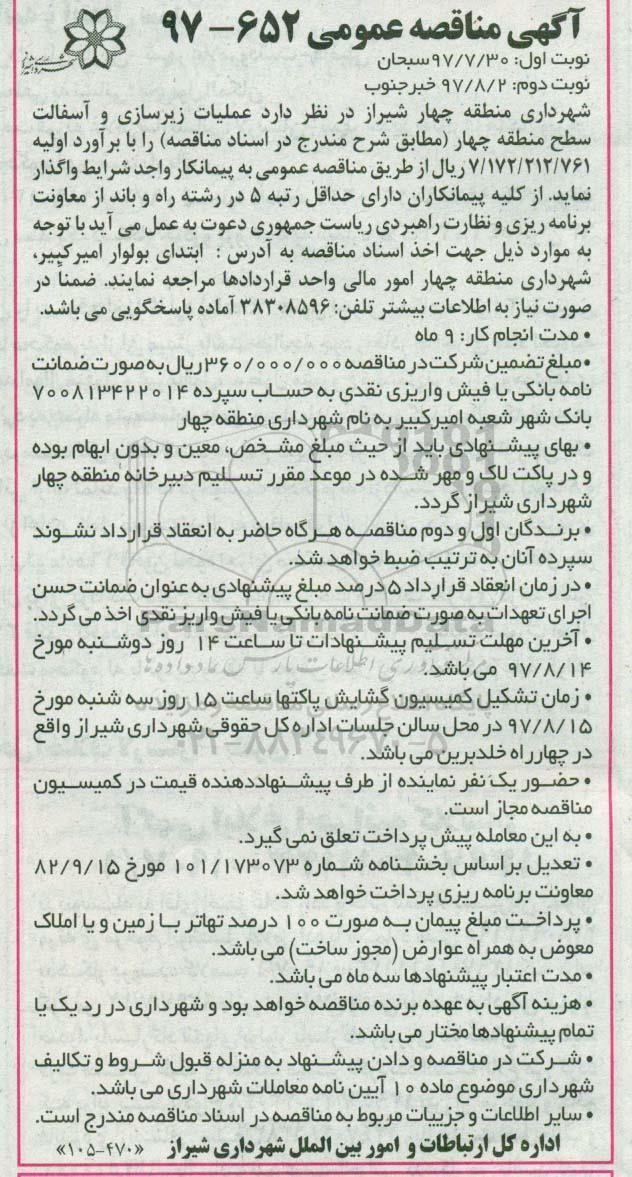 آگهی مناقصه عمومی ۶۵۲- ۹۷
نوبت اول: ۹۷/۷/۳۰سبحان
نوبت دوم: ۹۷/۸/۲ خبرجنوب
شهرداری منطقه چهار شیراز در نظر دارد عملیات زیرسازی و آسفالت
سطح منطقه چهار (مطابق شرح مندرج در اسناد مناقصه) را با برآورد اولیه
۷/۱۷۲/۲۱۲/۷۶۱ ریال از طریق مناقصه عمومی به پیمانکار واجد شرایط واگذار
نماید. از کلیه پیمانکاران دارای حداقل رتبه ۵ در رشته راه و باند از معاونت
برنامه ریزی و نظارت راهبردی ریاست جمهوری دعوت به عمل می آید با توجه
به موارد ذیل جهت اخذ اسناد مناقصه به آدرس : ابتدای بولوار امیرکبیر،
شهرداری منطقه چهار امور مالی واحد قراردادها مراجعه نمایند. ضمنا در
صورت نیاز به اطلاعات بیشتر تلفن: ۳۸۳۰۸۵۹۶ آماده پاسخگویی می باشد.
• مدت انجام کار: ۹ ماه
• مبلغ تضمین شرکت در مناقصه ۳۶۰/۰۰۰/۰۰۰ریال به صورت ضمانت
نامه بانکی یا فیش واریزی نقدی به حساب سپرده ۷۰۰۸۱۳۴۲۲۰۱۴
بانک شهر شعبه امیرکبیر به نام شهرداری منطقه چهار
• بهای پیشنهادی باید از حیث مبلغ مشخص، معین و بدون ابهام بوده
و در پاکت لاک و مهر شده در موعد مقرر تسلیم دبیرخانه منطقه چهار
شهرداری شیراز گردد.
• برندگان اول و دوم مناقصه هرگاه حاضر به انعقاد قرارداد نشوند
سپرده آنان به ترتیب ضبط خواهد شد.
• در زمان انعقاد قرارداد ۵ درصد مبلغ پیشنهادی به عنوان ضمانت حسن
اجرای تعهدات به صورت ضمانت نامه بانکی یا فیش واریز نقدی اخذ می گردد.
• آخرین مهلت تسلیم پیشنهادات تا ساعت ۱۴ روز دوشنبه مورخ
۹۷/۸/۱۴ می باشد.
• زمان تشکیل کمیسیون گشایش پاکتها ساعت ۱۵ روز سه شنبه مورخ
۹۷/۸/۱۵ در محل سالن جلسات اداره کل حقوقی شهرداری شیراز واقع
در چهارراه خلدبرین می باشد.
• حضور یک نفر نماینده از طرف پیشنهاددهنده قیمت در کمیسیون
مناقصه مجاز است.
• به این معامله پیش پرداخت تعلق نمی گیرد.
• تعدیل بر اساس بخشنامه شماره ۱۰۱/۱۷۳۰۷۳ مورخ ۸۲/۹/۱۵
معاونت برنامه ریزی پرداخت خواهد شد.
• پرداخت مبلغ پیمان به صورت ۱۰۰ درصد تهاتر با زمین و یا املاک
معوض به همراه عوارض (مجوز ساخت) می باشد.
• مدت اعتبار پیشنهادها سه ماه می باشد.
• هزینه آگهی به عهده برنده مناقصه خواهد بود و شهرداری در رد یک یا
تمام پیشنهادها مختار می باشد.
• شرکت در مناقصه و دادن پیشنهاد به منزله قبول شروط و تکالیف
شهرداری موضوع ماده ۱۰ آیین نامه معاملات شهرداری می باشد.
• سایر اطلاعات و جزییات مربوط به مناقصه در اسناد مناقصه مندرج است.
اداره کل ارتباطات و امور بین الملل شهرداری شیراز «۴۷۰-۱۰۵»